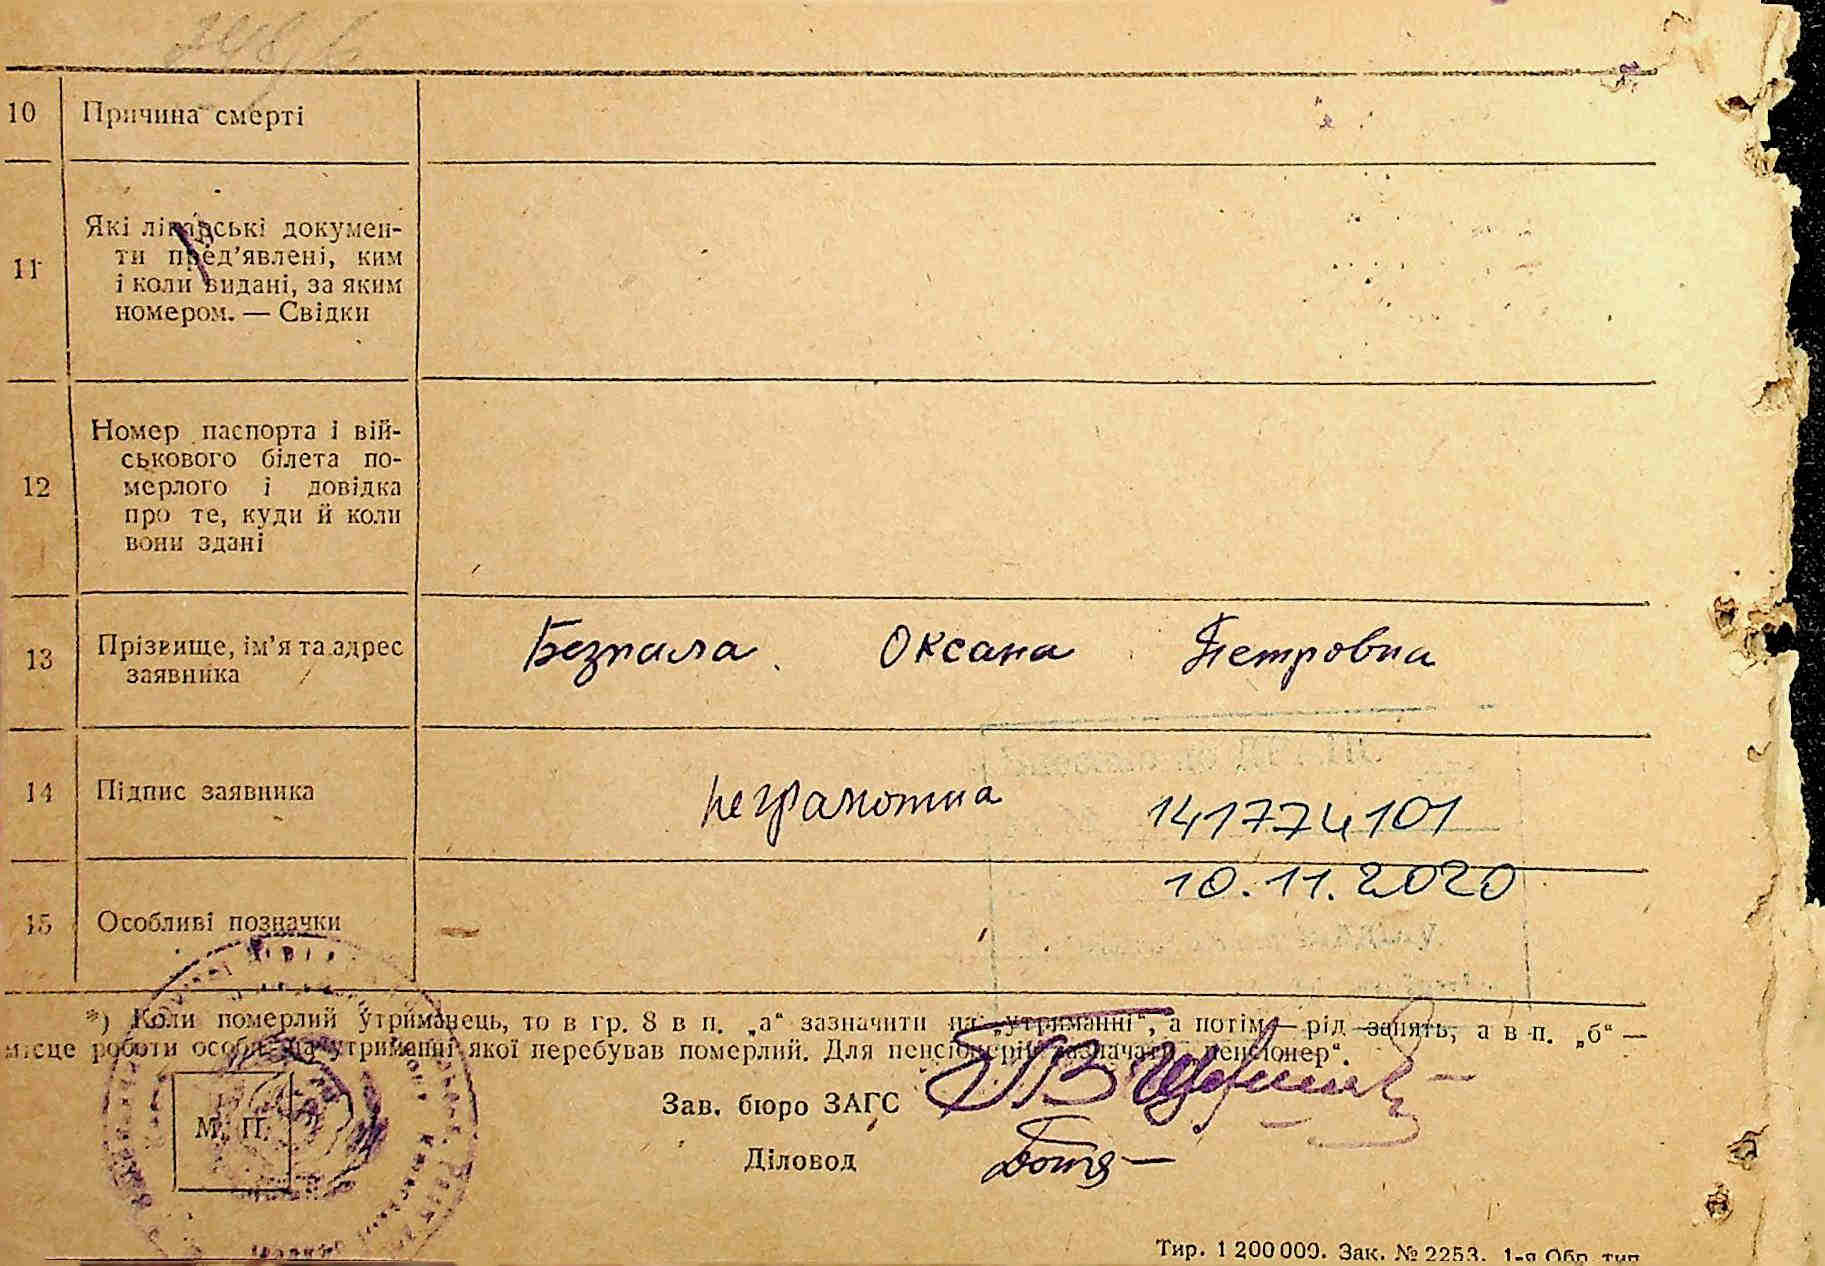 10 Причина смерті
11 Які лікарські докумен-
ти пред’явлені, ким
і коли видані, за яким
номером. — Свідки
12 Номер паспорта і вій-
ськового білета по-
мерлого і довідка
про те, куди й коли
вони здані
13 Прізвище, ім’я та адрес
заявника
Безпала Оксана Петровна
14 Підпис заявника
неграмотна
141774101
10.11.2020
15 Особливі позначки —
*) Коли померлий утриманець, то в гр. 8 в п. „а“ зазначити на „утриманні“, а потім — рід занять, а в п. „б“ —
місце роботи особи, на утриманні якої перебував померлий. Для пенсіонерів зазначати „пенсіонер“.
Зав. бюро ЗАГС
Діловод
М. П.
Тир. 1 200 000. Зак. № 2253. 1-я Обр. тип.